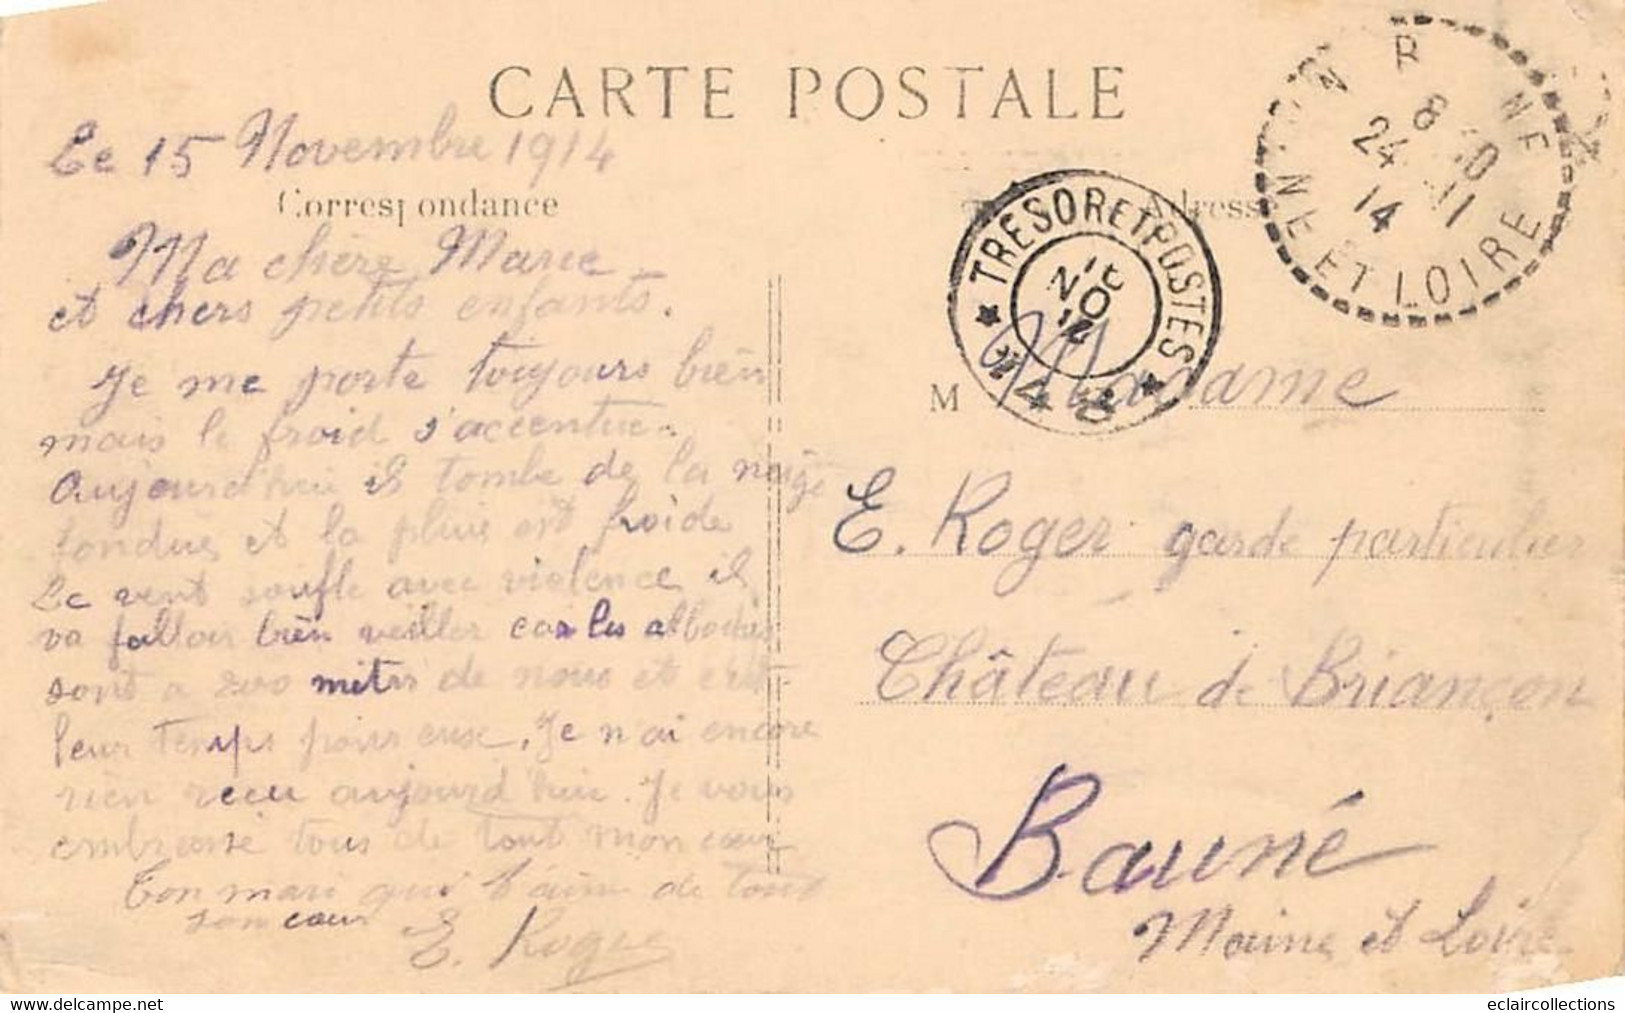 CARTE POSTALE
Le 15 Novembre 1914
Correspondance
Ma chère Marie
et chers petits enfants.
Je me porte toujours bien
mais le froid s'accentue.
Aujourd'hui il tombe de la neige
fondue et la pluie est froide
Le vent souffle avec violence il
va falloir bien veiller car les alboches
sont a 200 mètres de nous et c'est
leur temps pour eux. Je n'ai encore
rien reçu aujourd'hui. Je vous
embrasse tous de tout mon cœur
Ton mari qui t'aime de tout
son cœur
E. Roger
Adresse
TRESOR ET POSTES
* 48 *
8 10
24 11
14
NE ET LOIRE
M Madame
E. Roger garde particulier
Château de Briançon
Bauné
Maine et Loire
www.delcampe.net
eclaircollections